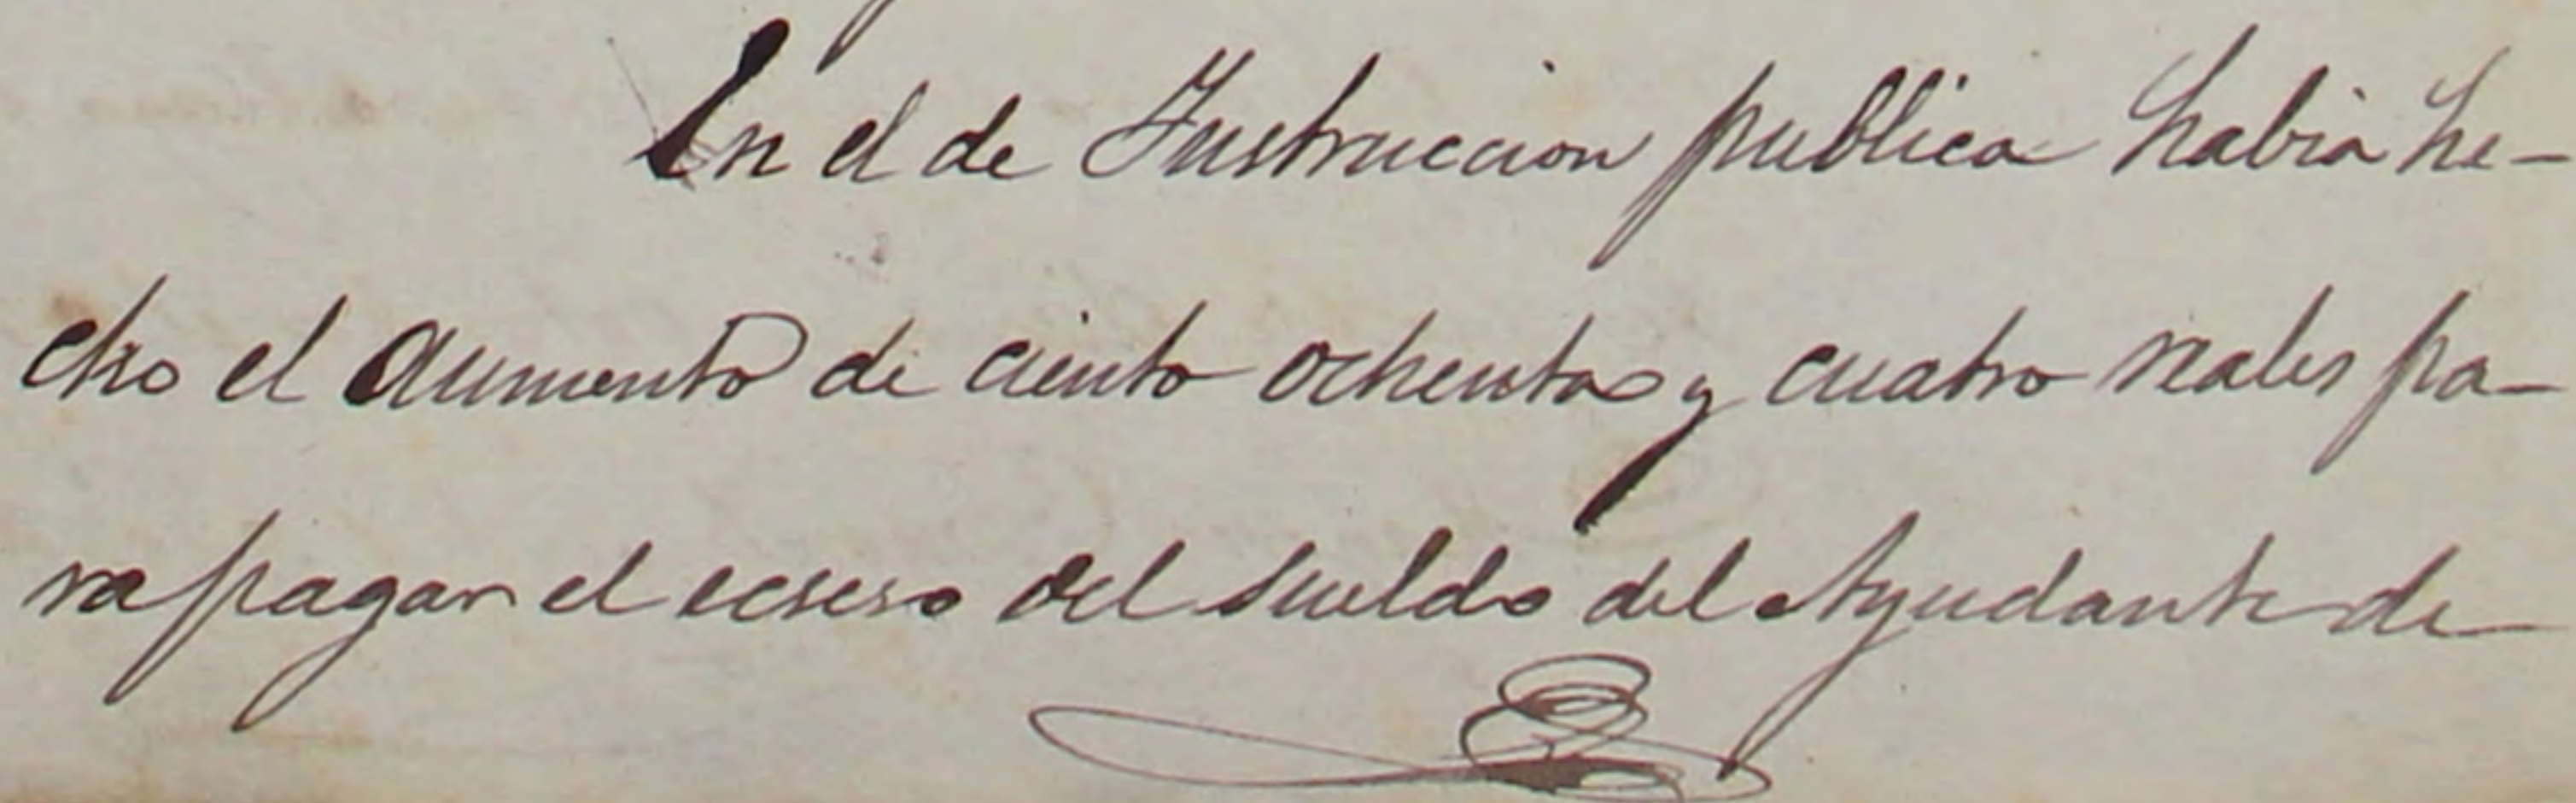 En el de Instruccion publica habia he-
cho el aumento de ciento ochenta y cuatro reales pa-
ra pagar el ecseso del sueldo del Ayudante de